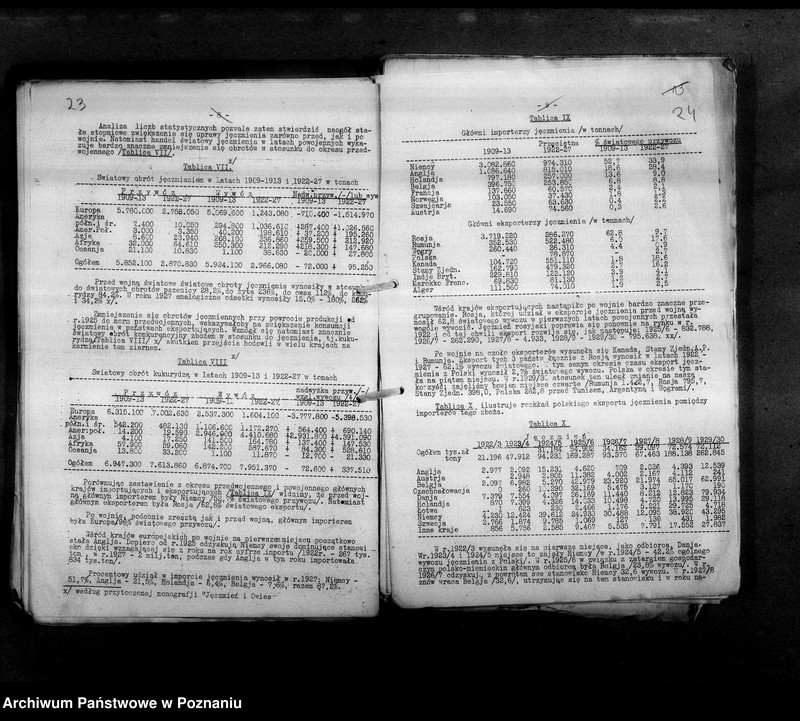 23
- 8 -
Analiza liczb statystycznych pozwala zatem stwierdzić naogół sta-
łe stopniowe zwiększenie się uprawy jęczmienia zarówno przed, jak i po
wojnie. Natomiast handel światowy jęczmienia w latach powojennych wyka-
zuje bardzo znaczne zmniejszenie się obrotów w stosunku do okresu przed-
wojennego /Tablica VII/.
Tablica VII. x/
Światowy obrót jęczmieniem w latach 1909-1913 i 1922-27 w tonach
P r z y w ó z W y w ó z Nadw.przyw./-/lub wyw
1909-13 1922-27 1909-13 1922-27 1909-13 1922-27
Europa 5.780.000 2.758.050 5.069.600 1.243.080 -710.400 -1.514.970
Ameryka
półn.i śr. 7.400 10.050 294.800 1.036.610 +287.400 +1.026.560
Amer.Poł. 3.000 3.350 40.200 198.610 + 37.200 + 195.260
Azja 8.600 23.940 268.100 236.860 +259.500 + 212.920
Afryka 32.000 64.610 250.300 212.290 +218.300 + 147.680
Oceanja 21.100 10.830 1.100 38.630 - 20.000 + 27.800
Ogółem 5.852.100 2.870.830 5.924.100 2.966.080 - 72.000 + 95.250
Przed wojną światowe obroty jęczmienia wynosiły w stosunku
do światowych obrotów pszenicy 28,2%, do żyta 236%, do owsa 112%, do kuku-
rydzy 84,2%. W roku 1927 analogiczne odsetki wynosiły 15.0% - 180%, 262%
i 34,2% x/.
Zmniejszenie się obrotów jęczmiennych przy powrocie produkcji od
r.1925 do norm przedwojennych, wskazywałoby na zwiększenie konsumcji
jęczmienia w państwach eksportujących. Powiększył się natomiast znacznie
światowy obrót konkurencyjny zbożem w stosunku do jęczmienia, tj.kuku-
rydzą/Tablica VIII/ x/ skutkiem przejścia hodowli w wielu krajach na
karmienie tem ziarnem.
Tablica VIII x/
Światowy obrót kukurydzą w latach 1909-13 i 1922-27 w tonach
P r z y w ó z W y w ó z nadwyżka przyw./-/
wzgl.wywozu /+/
1909-13 1922-27 1909-13 1922-27 1909-13 1922-27
Europa 6.315.100 7.002.630 2.537.300 1.604.100 -3.777.800 -5.398.530
Ameryka
półn.i śr. 542.200 482.130 1.106.600 1.172.270 + 564.400 + 690.140
Amer.poł. 14.200 19.590 2.946.900 4.410.680 +2.931.800 +4.391.090
Azja 4.100 17.250 141.500 164.780 + 137.400 + 147.530
Afryka 57.900 59.060 142.200 587.670 + 84.300 + 528.610
Oceanja 13.800 33.200 1.100 11.870 - 12.700 - 21.330
Ogółem 6.947.300 7.613.860 6.874.700 7.951.370 - 72.600 + 337.510
Porównując zestawienie z okresu przedwojennego i powojennego głównych
krajów importujących i eksportujących /Tablica IX/ widzimy, że przed woj-
ną głównym importerem były Niemcy /52,7% światowego przywozu/. Natomiast
głównym eksporterem była Rosja /62,8% światowego eksportu/.
Po wojnie, podobnie zresztą jak i przed wojną, głównym importerem
była Europa/96% światowego przywozu/.
Wśród krajów europejskich po wojnie na pierwszemmiejscu początkowo
stała Anglja. Dopiero od r.1925 odzyskują Niemcy swoje dominujące stanowi
sko dzięki wzmagającej się z roku na rok cyfrze importu /1922r. - 267 tys.
ton, w r.1927 - 2 milj.ton, podczas gdy Anglja w tym roku importowała
834 tys.ton/.
Procentowy udział w imporcie jęczmienia wynosił w r.1927: Niemcy -
51,7%, Anglja - 21,5%, Holandja - 6,4%, Belgja - 7,6%, razem 87,2%.
x/ według przytoczonej monografji "Jęczmień i Owies"
- 9 -
24
Tablica IX
Główni importerzy jęczmienia /w tonnach/
Przeciętna % światowego przywozu
1909-13 1922-27 1909-13 1922-27
Niemcy 3.082.860 974.310 52,7 33,9
Anglja 1.086.640 815.010 18,6 28,4
Holandja 797.180 257.000 13,6 9.0
Belgja 396.750 253.620 6,8 8,8
Francja 137.660 60.570 2,4 2,1
Norwegja 103.020 37.430 1,8 1,3
Szwajcarja 23.550 63.630 0,4 2,2
Austrja 14.690 74.560 0,3 2,6
Główni eksporterzy jęczmienia /w tonnach/
Rosja 3.719.220 286.270 62,8 9,7
Rumunja 352.530 522.480 6,7 17,6
Węgry 260.440 26.310 4.4 0,9
Polska 78.870 2,7
Kanada 104.720 551.110 1,8 18,6
Stany Zjedn. 162.790 479.320 2,7 16,2
Indje Bryt. 229.810 122.120 3,9 4,1
Marokko Franc. 69.830 81.130 1,2 2,7
Alger 111.560 74.010 1,9 2,5
Wśród krajów eksportujących nastąpiło po wojnie bardzo znaczne prze-
grupowanie. Rosja, której udział w eksporcie jęczmienia przed wojną wy-
nosił 62,8 światowego wywozu w pierwszych latach powojennych przestała
wogóle wywozić. Jęczmień rosyjski poprawia się ponownie na rynku w r.
1922 i od tej chwili eksport rozwija się, jak następuje: 1925/6 - 838.788,
1926/7 - 262.290, 1927/8 - 4.933, 1928/9 - 1929/30 - 795.638. xx/.
Po wojnie na czoło eksporterów wysunęła się Kanada, Stany Zjedn.A.P.
i Rumunja. Eksport tych 3 państw łącznie z Rosją wynosił w latach 1922 -
1927 - 62.1% wywozu światowego. W tym samym okresie czasu eksport jęcz-
mienia z Polski wynosił 2,7% światowego wywozu. Polska w okresie tym sta-
ła na piątem miejscu. W r.1929/3. stosunek ten uległ zmianie na naszą
korzyść; zajęliśmy bowiem miejsce czwarte /Rumunja 1.422,7, Rosja 795,7,
Stany Zjedn. 398,0, Polska 262,8 przed Tunisem, Argentyną i Węgrami/.
Tablica X. ilustruje rozkład polskiego eksportu jęczmienia pomiędzy
importerów tego zboża.
Tablica X
J ę c z m i e ń
1922/3 1923/4 1924/5 1925/6 1926/7 1927/8 1928/9 1929/30
Ogółem tys.zł 31.184 54.902 34.162 29.097 72.574 72.112
tony 21.196 47.912 94.231 169.287 93.370 67.463 188.138 262.845
Anglja 2.977 2.092 15.231 4.620 709 2.026 4.393 12.539
Austrja 2.948 2.805 11.382 4.002 2.167 4.112 241
Belgja 2.097 6.982 5.270 42.979 23.920 21.974 65.017 62.991
Czechosłowacja 0 260 11.290 32.169 5.478 3.127 1.170 190
Danja 7.379 7.554 4.097 26.169 11.440 8.212 12.823 79.934
Holandja 870 7.399 4.326 14.533 10.498 4.720 13.995 29.118
Łotwa 623 230 2.466 1.176 5.221 29.725 4.718
Niemcy 2.230 12.424 39.612 24.933 30.488 12.095 38.920 43.295
Szwecja 2.766 1.874 9.785 1.069 127 136 431 1.982
Inne kraje 856 5.756 2.585 9.467 5.535 7.791 17.552 27.837
W r.1922/3 wysunęła się na pierwsze miejsce, jako odbiorca, Danja.
Wr.1923/4 i 1924/5 miejsce to zajęły Niemcy /w r.1924/5 - 42.2% ogólnego
wywozu jęczmienia z Polski/. W r.1925/6 w związku z zatargiem gospodar-
czym polsko-niemieckim głównym odbiorcą była Belgja /23,8% wywozu/. W r.
1926/7 odzyskują z powrotem swe stanowisko Niemcy 32,6 wywozu. W r.1927/8
znów wraca Belgja /32,6/, utrzymując się na tem stanowisku i w roku na-
Archiwum Państwowe w Poznaniu
szukajwarchiwach.gov.pl